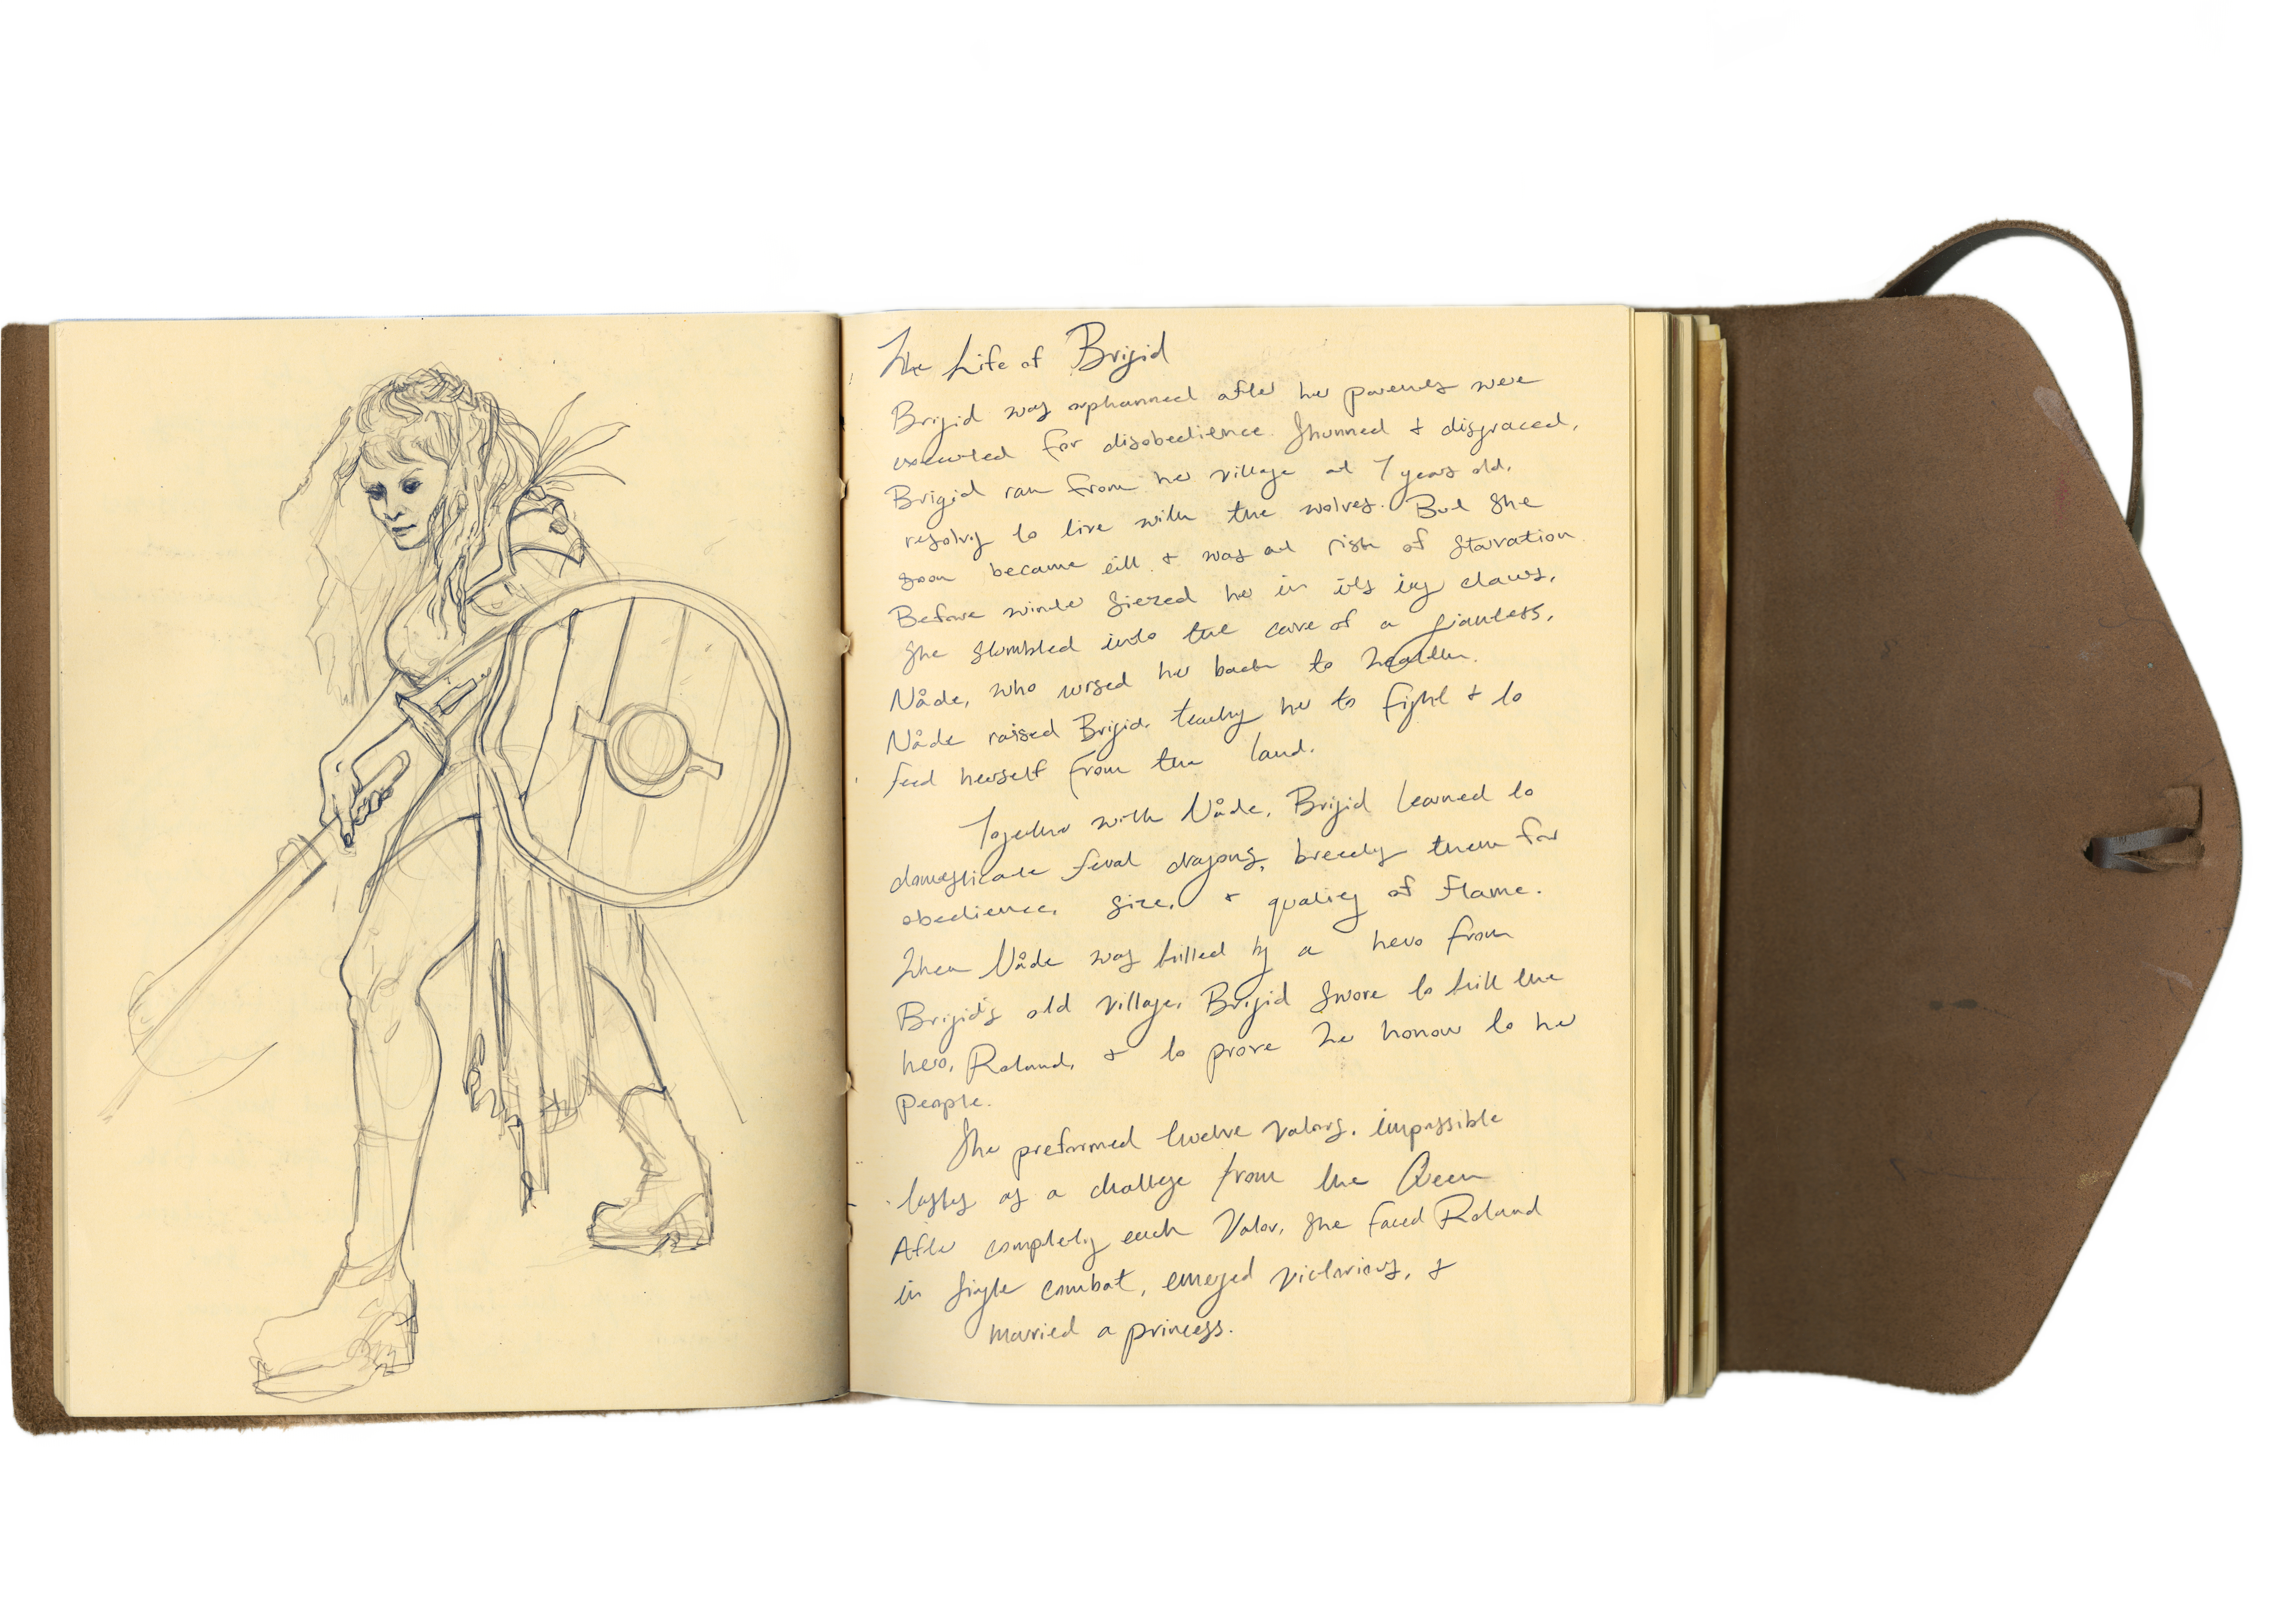 The Life of Brigid
Brigid was orphanned after her parents were
executed for disobedience. Shunned & disgraced,
Brigid ran from her village at 7 years old,
resolving to live with the wolves. But she
soon became ill & was at risk of starvation.
Before winter siezed her in its icy claws,
she stumbled into the cave of a giantess,
Nåde, who nursed her back to health.
Nåde raised Brigid, teaching her to fight & to
feed herself from the land.
Together with Nåde, Brigid learned to
domesticate feral dragons, breeding them for
obedience, size, & quality of flame.
When Nåde was killed by a hero from
Brigid's old village, Brigid swore to kill the
hero, Roland, & to prove her honor to her
people.
She preformed twelve valors, impossible
tasks as a challenge from the Queen
After completing each Valor, she faced Roland
in single combat, emerged victorious, &
married a princess.